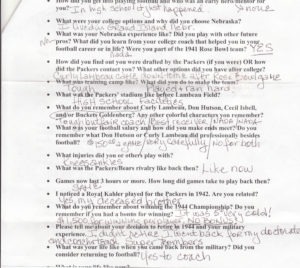 • How did you get into playing football and who was an early hero/mentor for
you? In high school it just happened  none
• What were your college options and why did you choose Nebraska?
I liked
• What was your Nebraska experience like? Did you play with other future
pros? What did you learn from your college coach that helped you in your
football career or in life? Were you part of the 1941 Rose Bowl team? YES
• How did you find out you were drafted by the Packers (if you were) OR how
did the Packers contact you? What other options did you have after college?
Curly Lambeau came after Rose Bowl game
• What was training camp like? What did you do to make the team?
Tough Played hard
• What was the Packers' stadium like before Lambeau Field?
High School Facilities
• What do you remember about Curly Lambeau, Don Hutson, Cecil Isbell,
and/or Buckets Goldenberg? Any other colorful characters you remember?
Tough but fair coach Best receiver
• What was your football salary and how did you make ends meet? Do you
remember what Don Hutson or Curly Lambeau did professionally besides
football? $150.00 a game/very carefully/No for both
• What injuries did you or others play with?
Knees ankles
• What was the Packers/Bears rivalry like back then? Like now
• Games now last 3 hours or more. How long did games take to play back then?
same
• I noticed a Royal Kahler played for the Packers in 1942. Are you related?
Yes, my deceased brother
• What do you remember about winning the 1944 Championship? Do you
remember if you had a bonus for winning? It was very cold!
$1,500 for winning one game NO BONUS!
• Please tell me about your decision to retire in 1944 and your military
experience. I didn't retire I went back for my doctorate
Super Bombers
• What was your life like when you came back from the military? Did you
consider returning to football? Yes to coach